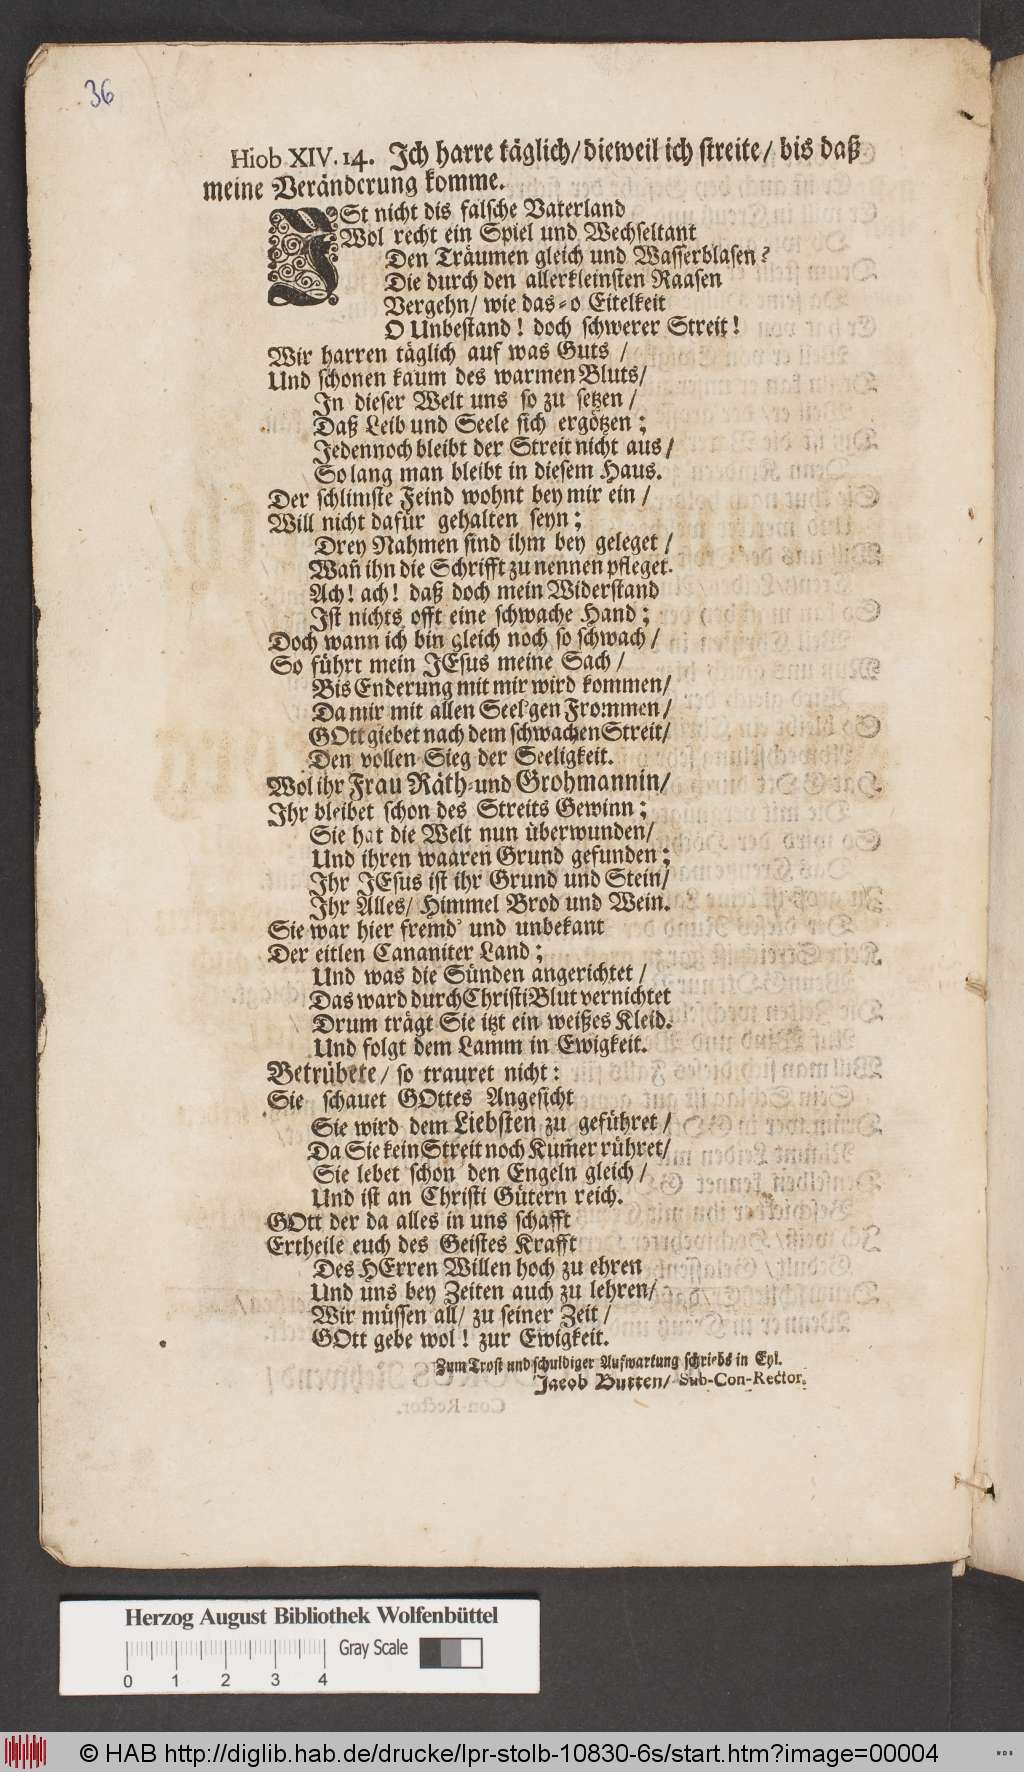 36
Hiob XIV. 14. Ich harre täglich/ dieweil ich streite/ bis daß
meine Veränderung komme.
ISt nicht dis falsche Vaterland
Wol recht ein Spiel und Wechseltant
Den Träumen gleich und Wasserblasen?
Die durch den allerkleinsten Raasen
Vergehn/ wie das=o Eitelkeit
O Unbestand! doch schwerer Streit!
Wir harren täglich auf was Guts /
Und schonen kaum des warmen Bluts/
In dieser Welt uns so zu setzen /
Daß Leib und Seele sich ergötzen;
Jedennoch bleibt der Streit nicht aus/
So lang man bleibt in diesem Haus.
Der schlimste Feind wohnt bey mir ein /
Will nicht dafür gehalten seyn;
Drey Nahmen sind ihm bey geleget /
Wañ ihn die Schrifft zu nennen pfleget.
Ach! ach! daß doch mein Widerstand
Ist nichts offt eine schwache Hand;
Doch wann ich bin gleich noch so schwach /
So führt mein JEsus meine Sach /
Bis Enderung mit mir wird kommen/
Da mir mit allen Seel'gen Frommen /
GOtt giebet nach dem schwachen Streit/
Den vollen Sieg der Seeligkeit.
Wol ihr Frau Räth=und Grohmannin/
Ihr bleibet schon des Streits Gewinn;
Sie hat die Welt nun überwunden/
Und ihren waaren Grund gefunden;
Ihr JEsus ist ihr Grund und Stein/
Ihr Alles/ Himmel Brod und Wein.
Sie war hier fremd' und unbekant
Der eitlen Cananiter Land;
Und was die Sünden angerichtet /
Das ward durch Christi Blut vernichtet
Drum trägt Sie itzt ein weißes Kleid.
Und folgt dem Lamm in Ewigkeit.
Betrübete/ so trauret nicht:
Sie schauet GOttes Angesicht
Sie wird dem Liebsten zu geführet /
Da Sie kein Streit noch Kum̃er rühret/
Sie lebet schon den Engeln gleich /
Und ist an Christi Gütern reich.
GOtt der da alles in uns schafft
Ertheile euch des Geistes Krafft
Des HErren Willen hoch zu ehren
Und uns bey Zeiten auch zu lehren/
Wir müssen all/ zu seiner Zeit /
GOtt gebe wol! zur Ewigkeit.
Zum Trost und schuldiger Aufwartung schriebs in Eyl.
Jacob Butten/ Sub-Con-Rector.
Herzog August Bibliothek Wolfenbüttel
Gray Scale
0 1 2 3 4
© HAB http://diglib.hab.de/drucke/lpr-stolb-10830-6s/start.htm?image=00004